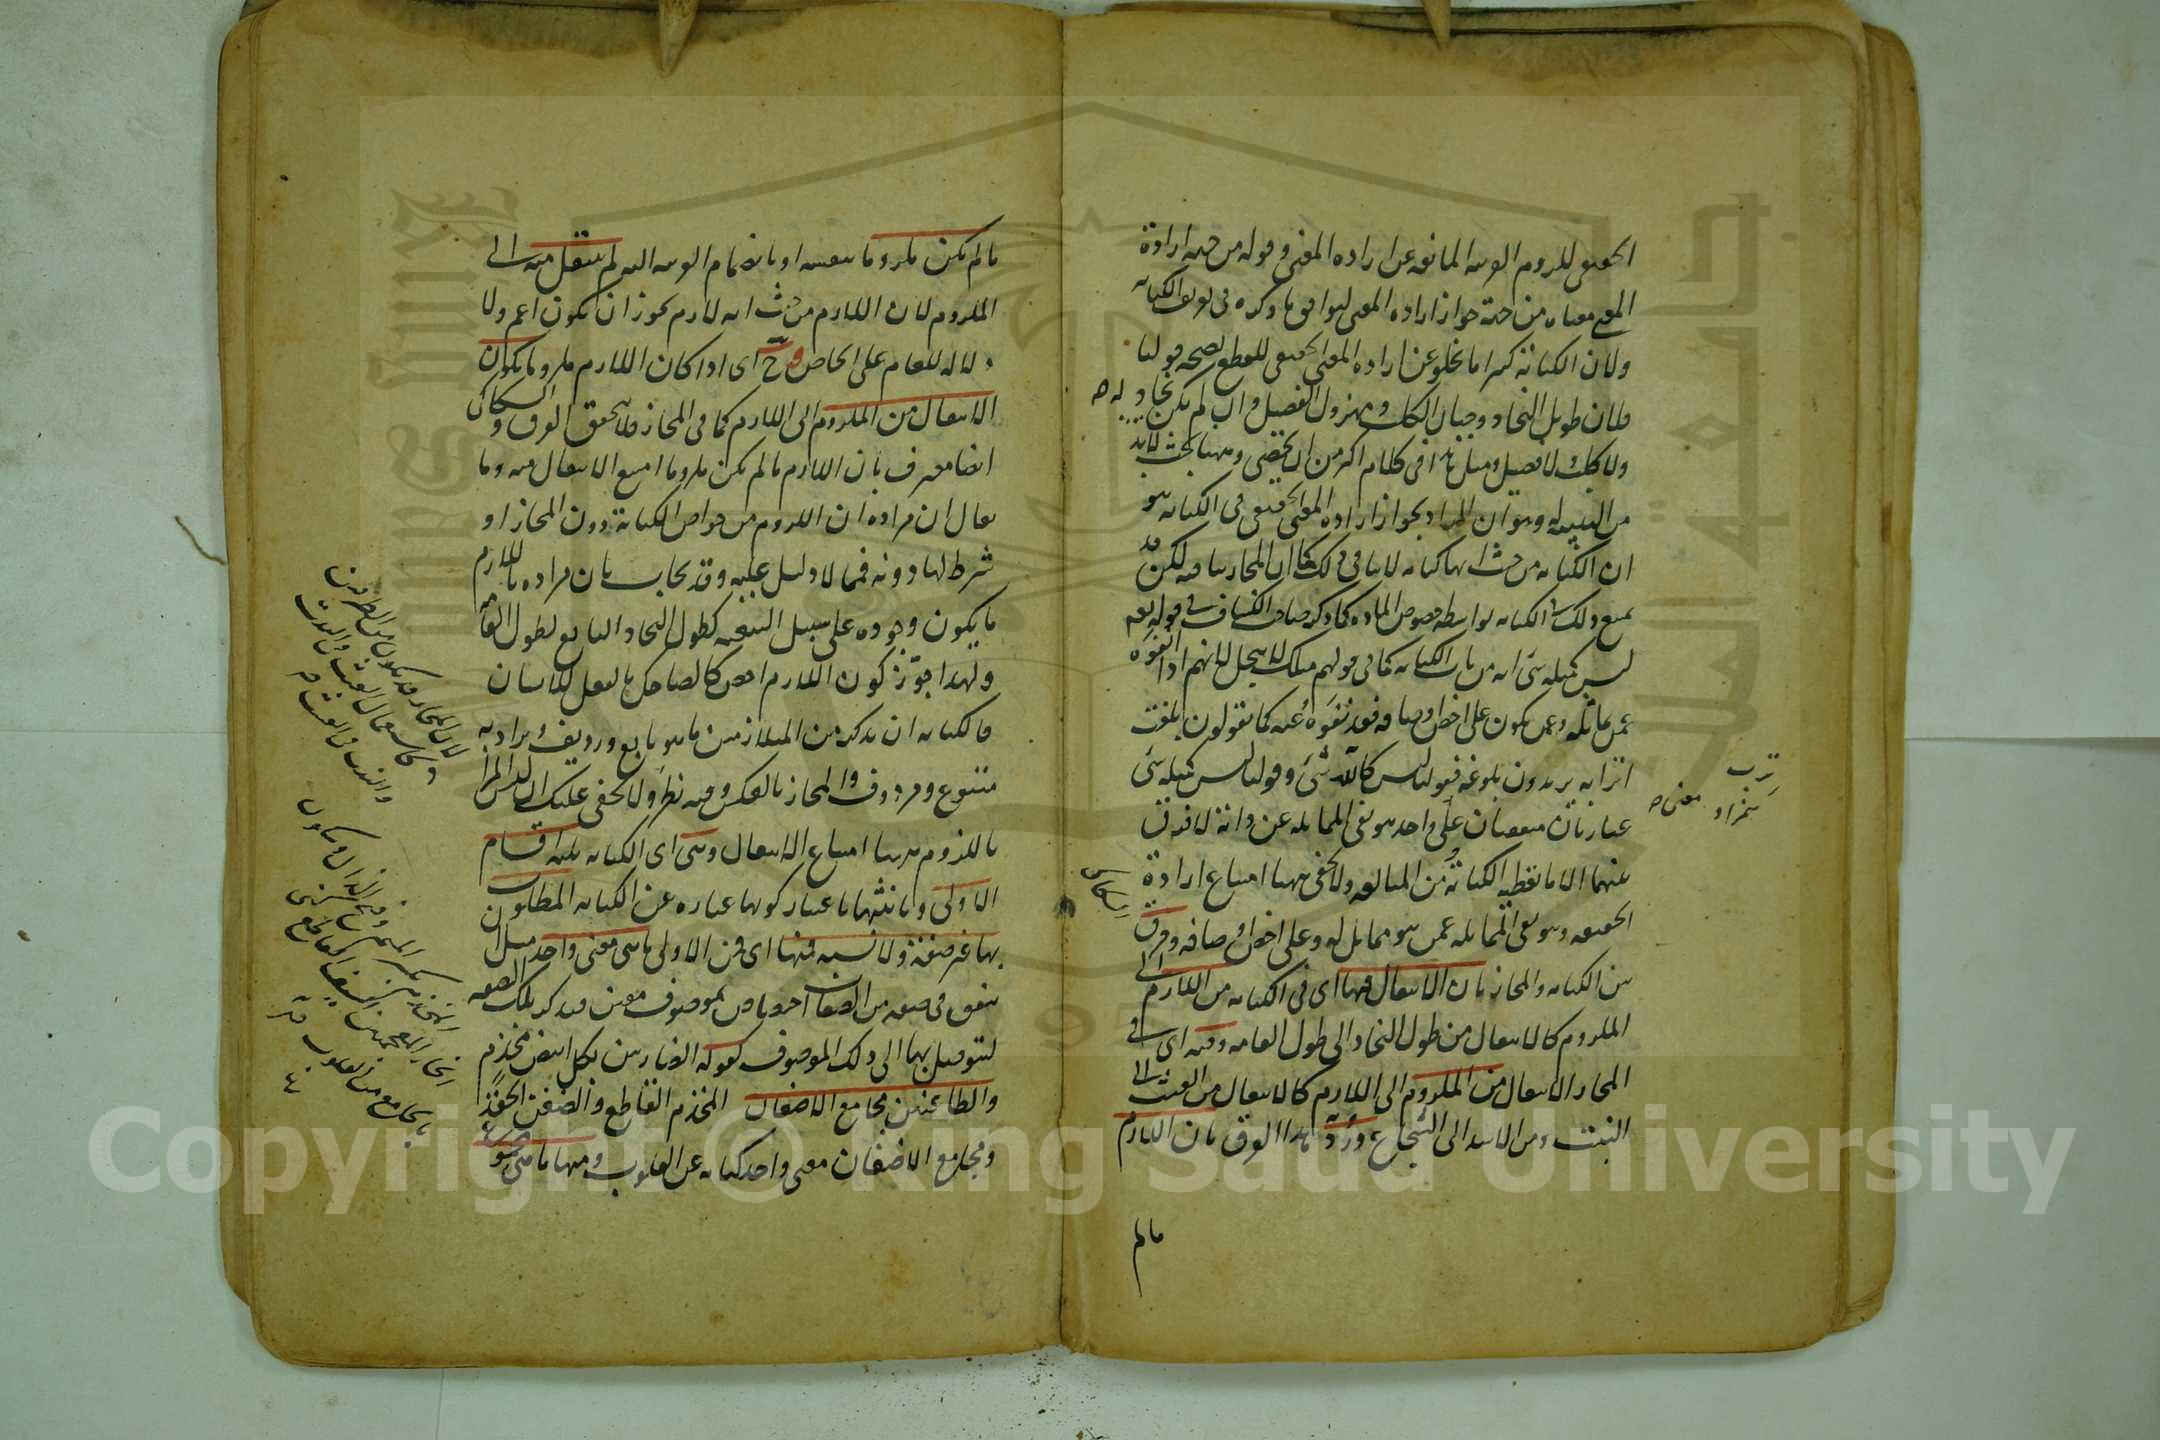 الحقيقى للزوم القرينة المانعة عن ارادة المعنى وقوله من جهة ارادة
المعنى معناه من جهة جواز ارادة المعنى ليوافق ما ذكره فى تعريف الكناية
ولان الكناية كثيرا ما تخلو عن ارادة المعنى الحقيقى للقطع بصحة قولنا
فلان طويل النجاد وجبان الكلب ومهزول الفصيل وان لم يكن له نجاد
ولا كلب ولا فصيل ومثل هذا فى الكلام اكثر من ان يحصى وههنا بحث لابد
من التنبيه له وهو ان المراد بجواز ارادة المعنى الحقيقى فى الكناية هو
ان الكناية من حيث انها كناية لا تنافى ذلك كما ان المجاز ينافيه لكن قد
يمتنع ذلك فى الكناية بواسطة خصوص المادة كما ذكر صاحب الكشاف فى قوله تعالى
ليس كمثله شئ انه من باب الكناية كما فى قولهم مثلك لا يبخل لانهم اذا نفوه
عمن يماثله وعمن يكون على اخص اوصافه فقد نفوه عنه كما يقولون بلغت
اترابه يريدون بلوغه فقولنا ليس كالله شئ وقولنا ليس كمثله شئ
عبارتان متعقبتان على معنى واحد هو نفى المماثلة عن ذاته لا فرق
بينهما الا ما تعطيه الكناية من المبالغة ولا يخفى ههنا امتناع ارادة
الحقيقة وهو نفى المماثلة عمن هو مماثل له وعلى اخص اوصافه وفرق
بين الكناية والمجاز بان الانتقال فيها اى فى الكناية من اللازم الى
الملزوم كالانتقال من طول النجاد الى طول القامة وفيه اى فى
المجاز الانتقال من الملزوم الى اللازم كالانتقال من الغيث الى
النبت ومن الاسد الى الشجاع ورد هذا الفرق بان اللازم
السكاكى
ترب
همزاد
معنى صح
مالم
مالم يكن ملزوما بنفسه او بانضمام القرينة اليه لم ينتقل منه الى
الملزوم لان اللازم من حيث انه لازم يجوز ان يكون اعم ولا
دلالة للعام على الخاص وح اى اذا كان اللازم ملزوما يكون
الانتقال من الملزوم الى اللازم كما فى المجاز فلا يتحقق الفرق والسكاكى
ايضا معترف بان اللازم مالم يكن ملزوما امتنع الانتقال منه وما
يقال ان مراده ان اللزوم من خواص الكناية دون المجاز او
شرط لها دونه فمما لا دليل عليه وقد يجاب بان مراده باللازم
ما يكون وجوده على سبيل التبعية كطول النجاد التابع لطول القامة
ولهذا جوز كون اللازم اخص كالضاحك بالفعل للانسان
فالكناية ان يذكر من المتلازمين ما هو تابع ورديف ويراد به
متبوع ومردوف والمجاز بالعكس وفيه نظر ولا يخفى عليك ان ليس المراد
باللزوم ههنا امتناع الانفكاك وهى اى الكناية ثلثة اقسام
الاولى وتانيثها باعتبار كونها عبارة عن الكناية المطلوب
بها غير صفة ولا نسبة فمنها اى فمن الاولى ما هى معنى واحد مثل ان
يتفق فى صفة من الصفات اختصاص بموصوف معين فيذكر تلك الصفة
ليتوصل بها الى ذلك الموصوف كقوله الضاربين بكل ابيض مخذم
والطاعنين مجامع الاضغان المخذم القاطع والضغن الحقد
ومجامع الاضغان معنى واحد كناية عن القلوب ومنها ما هى مجموع
لان المجاز قد يكون من الطرفين
كاستعمال الغيث فى النبت
والنبت فى الغيث